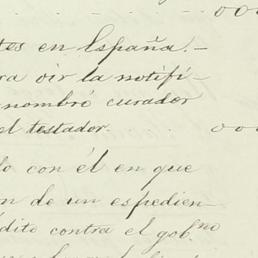 . . . 000
tes en España.—
ra oir la notifi-
nombró curador
el testador. . . 000
lo con él en que
on de un espedien-
dito contra el gob.no